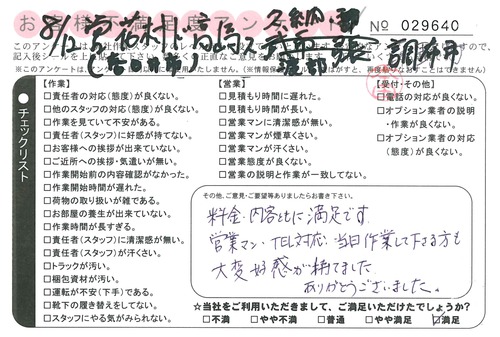 お 様 満足度アン
No 029640
8/12
調布市
このアン
記入後シールを上
(※このアンケートは、 いたしません。(※情報保 再度貼りなおすことはできません)
チェックリスト
【作業】
□責任者の対応(態度)が良くない。
□他のスタッフの対応(態度)が良くない。
□作業を見ていて不安がある。
□責任者(スタッフ)に好感が持てない。
□お客様への挨拶が出来ていない。
□ご近所への挨拶・気遣いが無い。
□作業開始前の内容確認がなかった。
□作業開始時間が遅れた。
□荷物の取り扱いが雑である。
□お部屋の養生が出来ていない。
□作業時間が長すぎる。
□責任者(スタッフ)に清潔感が無い。
□責任者(スタッフ)が汗くさい。
□トラックが汚い。
□梱包資材が汚い。
□運転が不安(下手)である。
□靴下の履き替えをしてない。
□スタッフにやる気がみられない。
【営業】
□見積もり時間に遅れた。
□見積もり時間が長い。
□営業マンに清潔感が無い。
□営業マンが煙草くさい。
□営業マンが汗くさい。
□営業態度が良くない。
□営業の説明と作業が一致してない。
【受付・その他】
□電話の対応が良くない。
□オプション業者の説明
・作業が良くない。
□オプション業者の対応
(態度)が良くない。
その他、ご意見・ご要望等ありましたらお書き下さい。
料金・内容ともに満足です。
営業マン・TEL対応・当日作業して下さる方も
大変好感が持てました。
ありがとうございました。
☆当社をご利用いただきまして、ご満足いただけたでしょうか?
□不満 □やや不満 □普通 □やや満足 ☑満足